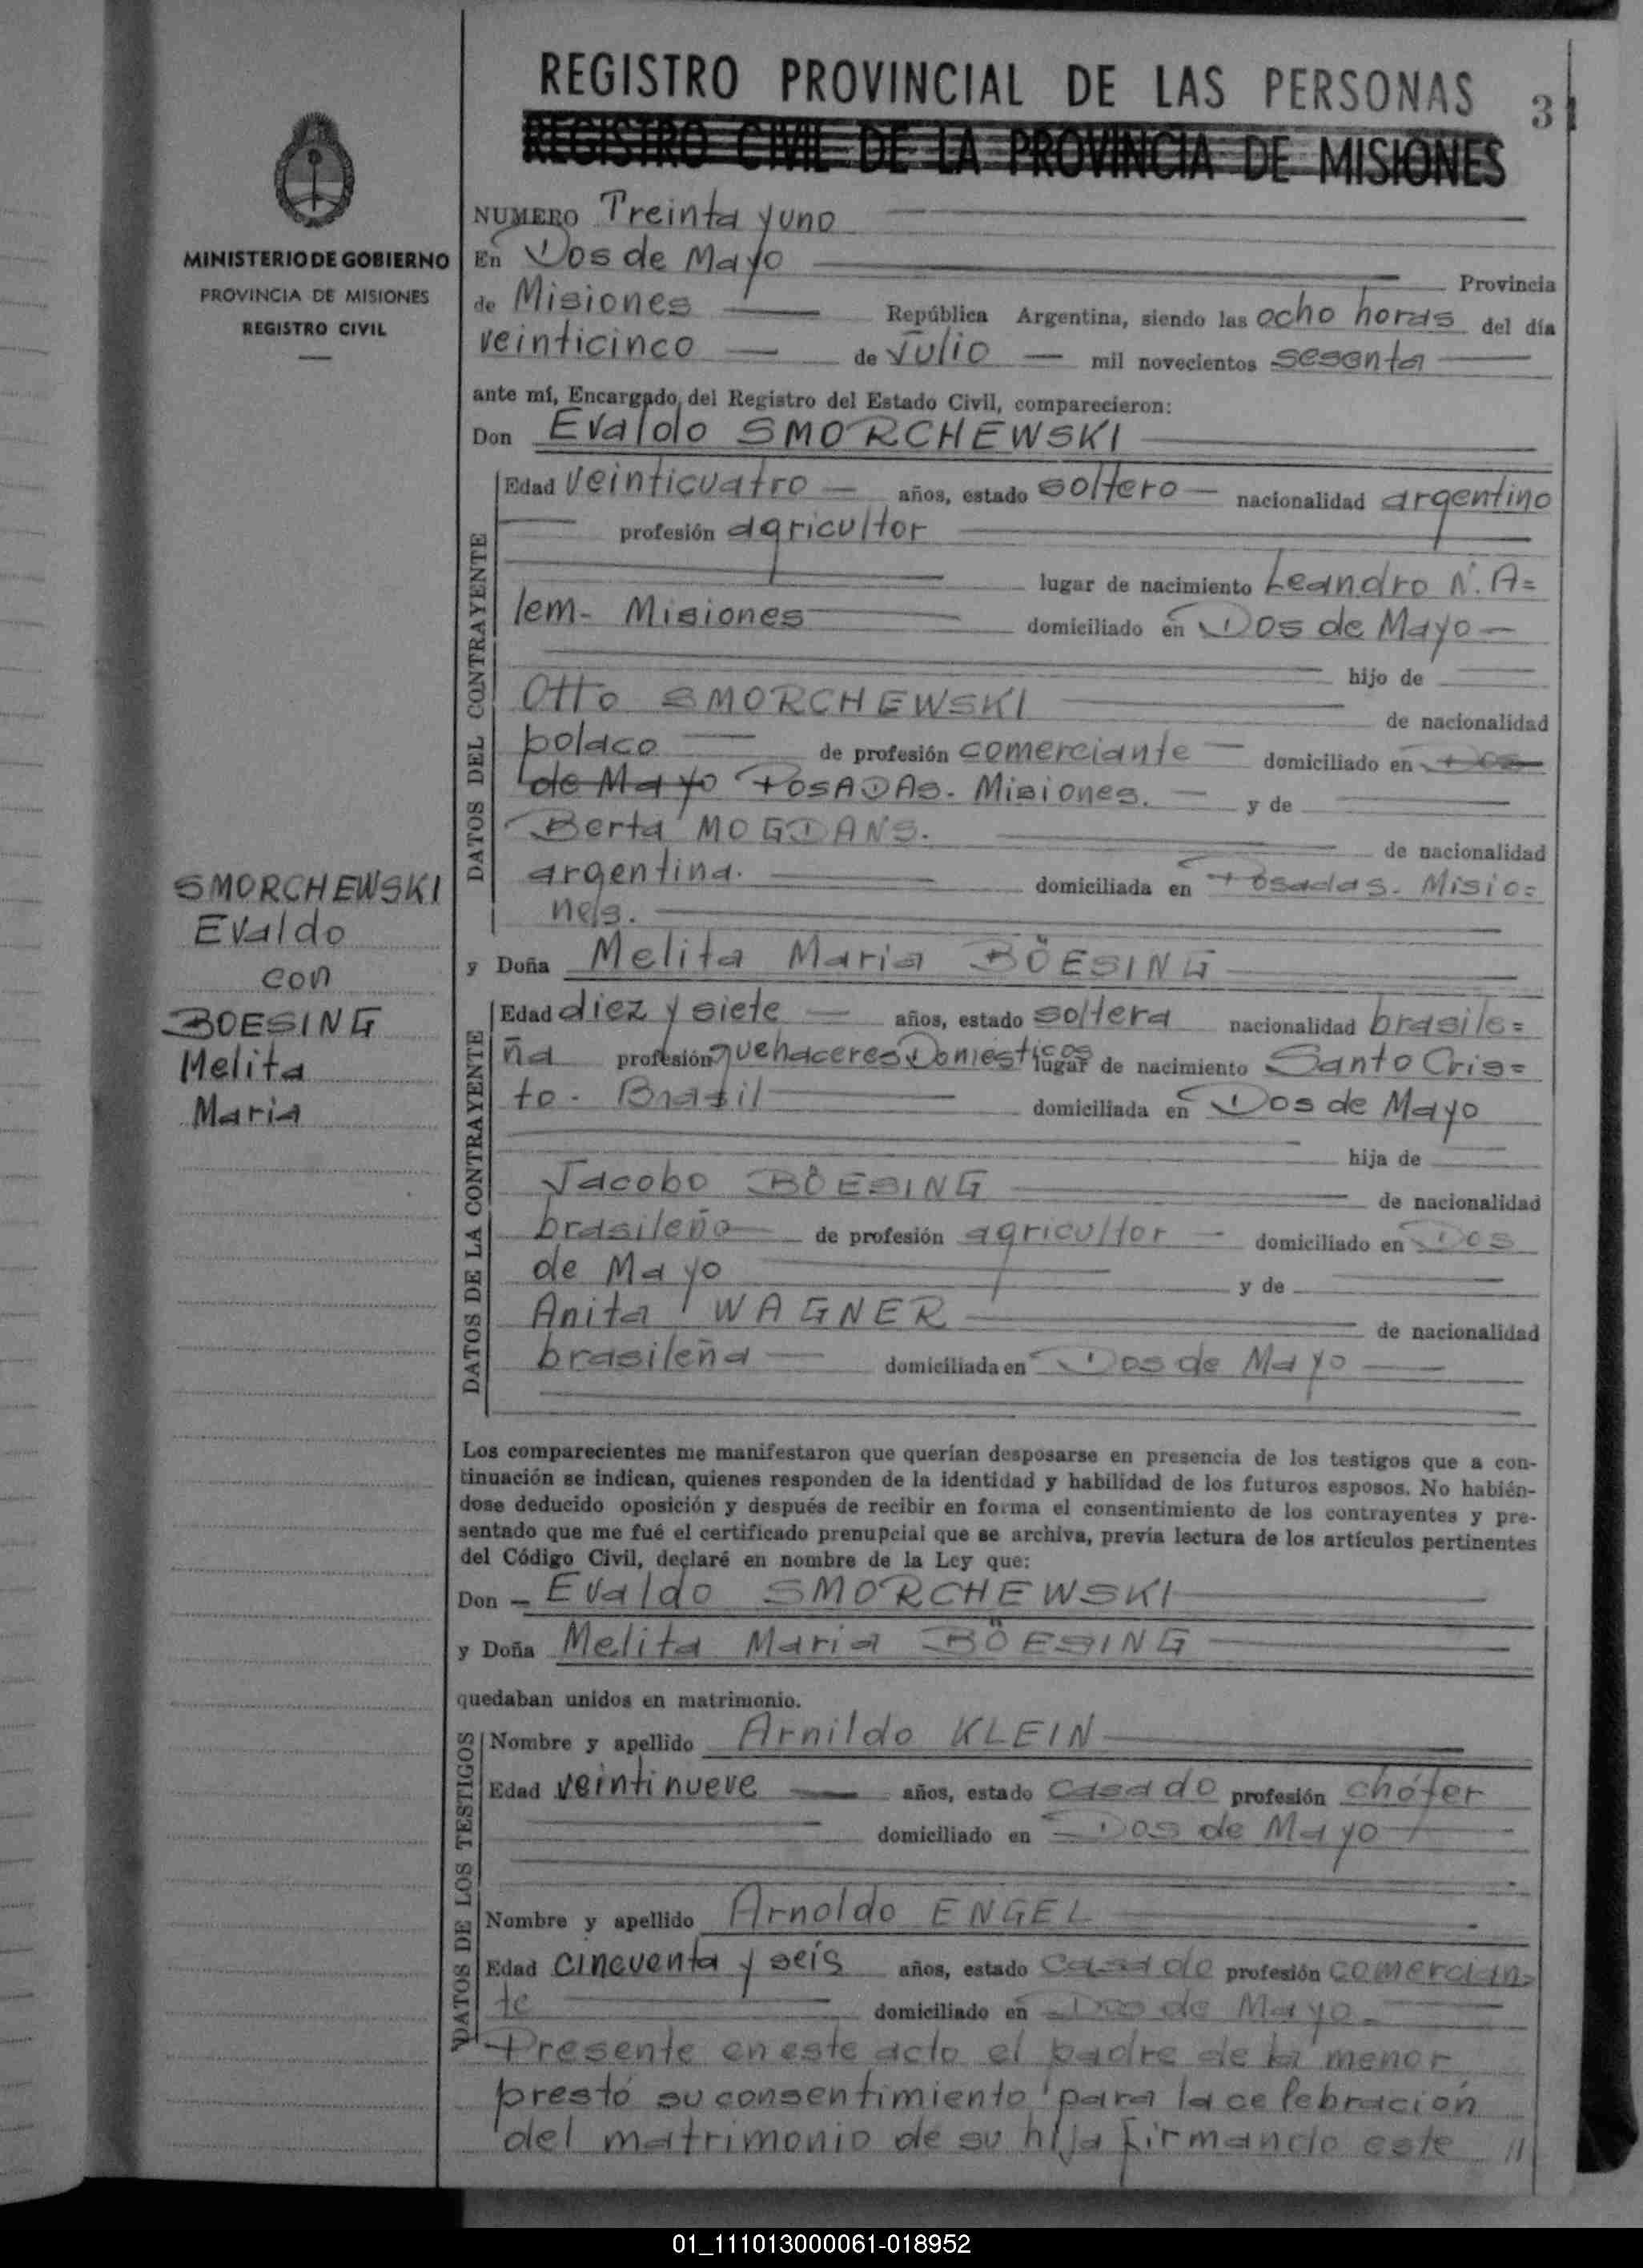 REGISTRO PROVINCIAL DE LAS PERSONAS
31
REGISTRO CIVIL DE LA PROVINCIA DE MISIONES
MINISTERIO DE GOBIERNO
PROVINCIA DE MISIONES
REGISTRO CIVIL
SMORCHEWSKI
Evaldo
con
BOESING
Melita
Maria
NUMERO Treinta y uno
En Dos de Mayo Provincia
de Misiones República Argentina, siendo las ocho horas del día
veinticinco de Julio mil novecientos sesenta
ante mí, Encargado del Registro del Estado Civil, comparecieron:
Don Evaldo SMORCHEWSKI
DATOS DEL CONTRAYENTE
Edad veinticuatro años, estado soltero nacionalidad argentino
profesión agricultor
lugar de nacimiento Leandro N. A=
lem- Misiones domiciliado en Dos de Mayo
hijo de
Otto SMORCHEWSKI de nacionalidad
polaco de profesión comerciante domiciliado en Dos
de Mayo POSADAS. Misiones. y de
Berta MOGDANS. de nacionalidad
argentina. domiciliada en Posadas. Misio=
nes.
y Doña Melita Maria BÖESING
DATOS DE LA CONTRAYENTE
Edad diez y siete años, estado soltera nacionalidad brasile=
ña profesión quehaceres Domesticos lugar de nacimiento Santo Cris=
to. Brasil domiciliada en Dos de Mayo
hija de
Jacobo BÖESING de nacionalidad
brasileño de profesión agricultor domiciliado en Dos
de Mayo y de
Anita WAGNER de nacionalidad
brasileña domiciliada en Dos de Mayo
Los comparecientes me manifestaron que querían desposarse en presencia de los testigos que a con-
tinuación se indican, quienes responden de la identidad y habilidad de los futuros esposos. No habién-
dose deducido oposición y después de recibir en forma el consentimiento de los contrayentes y pre-
sentado que me fué el certificado prenupcial que se archiva, previa lectura de los artículos pertinentes
del Código Civil, declaré en nombre de la Ley que:
Don Evaldo SMORCHEWSKI
y Doña Melita Maria BÖESING
quedaban unidos en matrimonio.
DATOS DE LOS TESTIGOS
Nombre y apellido Arnildo KLEIN
Edad veintinueve años, estado casado profesión chófer
domiciliado en Dos de Mayo
Nombre y apellido Arnoldo ENGEL
Edad cincuenta y seis años, estado casado profesión comercian=
te domiciliado en Dos de Mayo
Presente en este acto el padre de la menor
prestó su consentimiento para la celebración
del matrimonio de su hija firmando este //
01_111013000061-018952